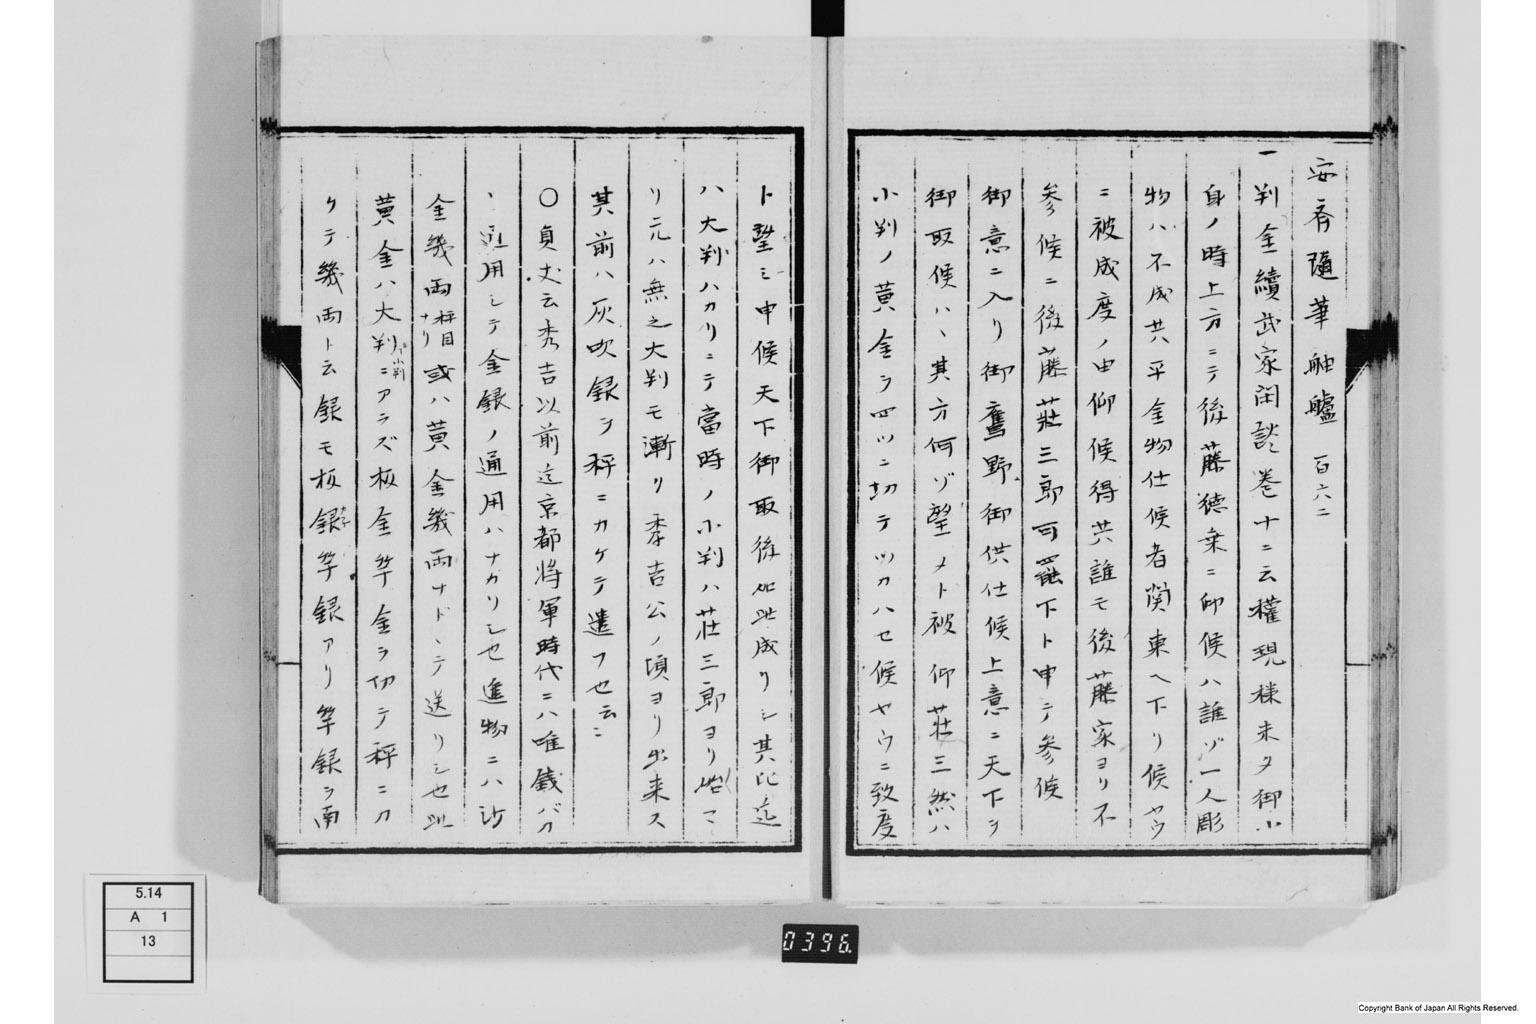 安斉随筆 舳艫 百六二
一判金続武家閑談巻十二云権現様未タ御小
身ノ時上方ニテ後藤徳乗ニ仰候ハ誰ゾ一人彫
物ハ不成共平金物仕候者関東ヘ下リ候ヤウ
ニ被成度ノ由仰候得共誰モ後藤家ヨリ不
参候ニ後藤荘三郎可罷下ト申テ参候
御意ニ入リ御鷹野御供仕候上意ニ天下ヲ
御取候ハヽ其方何ゾ望メト被仰荘三然ハ
小判ノ黄金ヲ四ツニ切テツカハセ候ヤウニ致度
ト望ミ申候天下御取後如此成リシ其比迄
ハ大判バカリニテ當時ノ小判ハ荘三郎ヨリ始マ
リ元ハ無之大判モ漸リ秀吉公ノ頃ヨリ出来ス
其前ハ灰吹銀ヲ秤ニカケテ遣フ也云ミ
〇貞丈云秀吉以前迄京都将軍時代ニハ唯銭バカ
ヽ通用シテ金銀ノ通用ハナカリシ也進物ニハ沙
金幾両秤目ナリ或ハ黄金幾両ナドヽテ送リシ也此
黄金ハ大判小判ニアラズ板金竿金ヲ切テ秤ニカ
ケテ幾両ト云銀モ板銀竿銀アリ竿銀ヲ南
5.14
A 1
13
0396.
Copyright Bank of Japan All Rights Reserved.